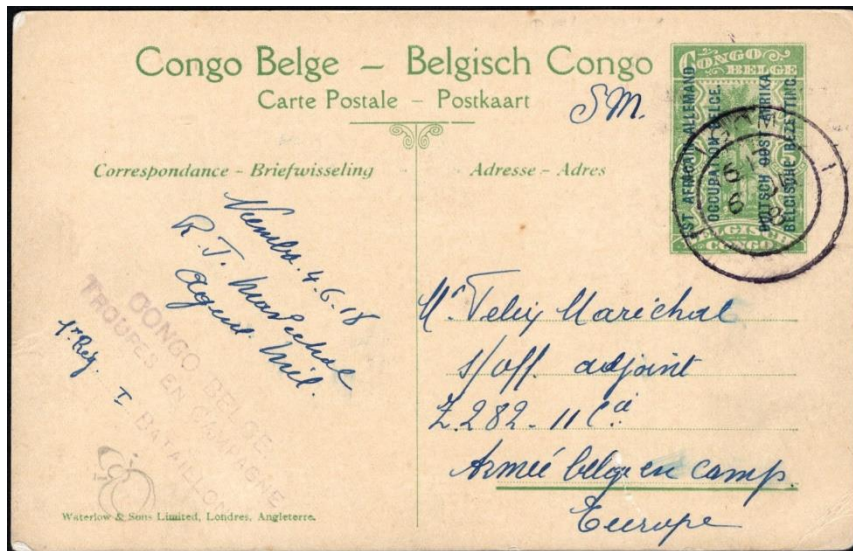 Congo Belge – Belgisch Congo
Carte Postale – Postkaart
S.M.
CONGO
BELGE
EST AFRICAIN ALLEMAND
OCCUPATION BELGE.
DUITSCH OOST AFRIKA
BELGISCHE BEZETTING.
BELGISCH
CONGO
KIGOMA
Correspondance – Briefwisseling
Adresse – Adres
4.6.18
R. J. Marechal
Agent Mil.
1r Reg. I
CONGO BELGE
TROUPES EN CAMPAGNE
BATAILLON
Mr Felix Maréchal
s/off. adjoint
Z.282 - 11 Cie
Armée belge en camp.
Europe
Waterlow & Sons Limited, Londres, Angleterre.